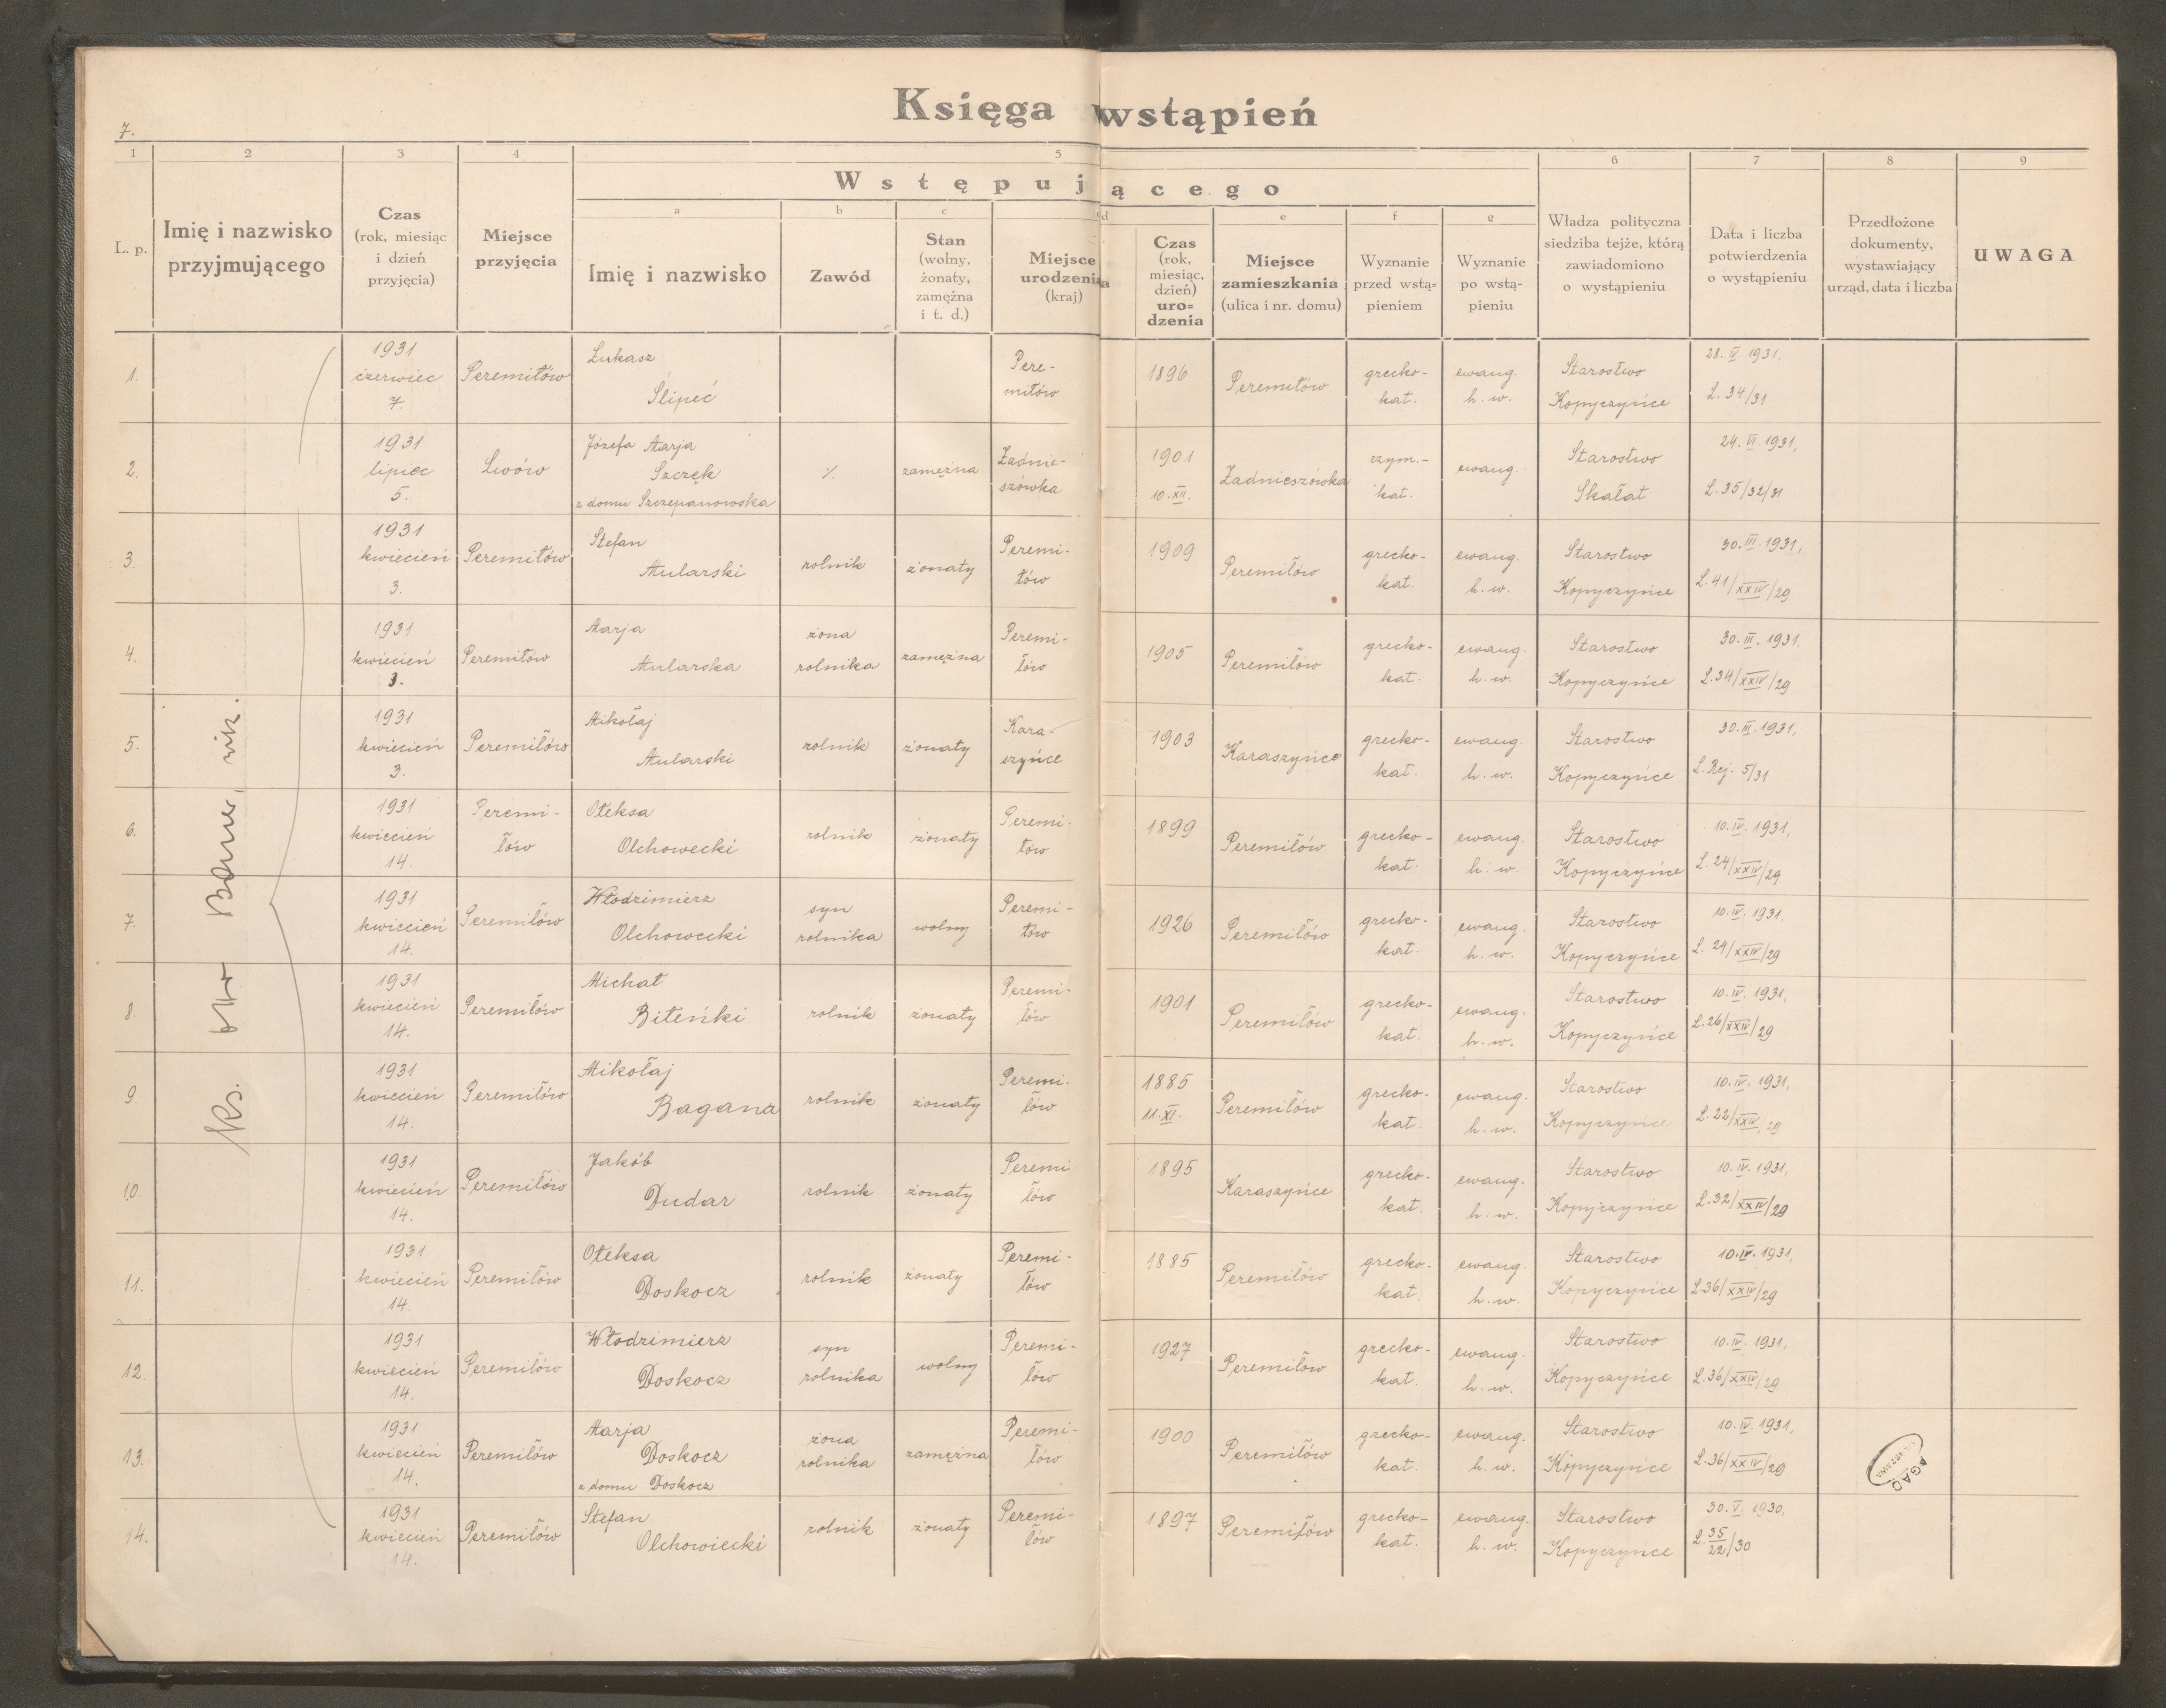 Księga wstąpień
7.
1 2 3 4 5 6 7 8 9
Wstępującego
a b c d e f g
L. p.
Imię i nazwisko
przyjmującego
Czas
(rok, miesiąc
i dzień
przyjęcia)
Miejsce
przyjęcia
Imię i nazwisko
Zawód
Stan
(wolny,
żonaty,
zamężna
i t. d.)
Miejsce
urodzenia
(kraj)
Czas
(rok,
miesiąc,
dzień)
uro=
dzenia
Miejsce
zamieszkania
(ulica i nr. domu)
Wyznanie
przed wstą=
pieniem
Wyznanie
po wstą-
pieniu
Władza polityczna
siedziba tejże, którą
zawiadomiono
o wystąpieniu
Data i liczba
potwierdzenia
o wystąpieniu
Przedłożone
dokumenty,
wystawiający
urząd, data i liczba
UWAGA
Ks. Bauer, wik.
1.
1931
czerwiec
7.
Peremiłów
Łukasz
Ślipeć
Pere-
miłów
1896
Peremiłów
grecko-
kat.
ewang.
h. w.
Starostwo
Kopyczyńce
28. IV. 1931,
L. 34/31
2.
1931
lipiec
5.
Lwów
Józefa Marja
Szczęk
z domu Szczepanowska
%
zamężna
Zadnie-
szówka
1901
10. XII.
Zadnieszówka
rzym.-
kat.
ewang.
Starostwo
Skałat
24. VI. 1931,
L. 35/32/31
3.
1931
kwiecień
3.
Peremiłów
Stefan
Mularski
rolnik
żonaty
Peremi-
łów
1909
Peremiłów
grecko-
kat.
ewang.
h. w.
Starostwo
Kopyczyńce
30. III. 1931,
L. 41/XXIV/29
4.
1931
kwiecień
3.
Peremiłów
Marja
Mularska
żona
rolnika
zamężna
Peremi-
łów
1905
Peremiłów
grecko-
kat.
ewang.
h. w.
Starostwo
Kopyczyńce
30. III. 1931,
L. 34/XXIV/29
5.
1931
kwiecień
3.
Peremiłów
Mikołaj
Mularski
rolnik
żonaty
Kara-
szyńce
1903
Karaszyńce
grecko-
kat.
ewang.
h. w.
Starostwo
Kopyczyńce
30. III. 1931,
L. Rej. 5/31
6.
1931
kwiecień
14.
Peremi-
łów
Ołeksa
Olchowecki
rolnik
żonaty
Peremi-
łów
1899
Peremiłów
grecko-
kat.
ewang.
h. w.
Starostwo
Kopyczyńce
10. IV. 1931,
L. 24/XXIV/29
7.
1931
kwiecień
14.
Peremiłów
Włodzimierz
Olchowecki
syn
rolnika
wolny
Peremi-
łów
1926
Peremiłów
grecko-
kat.
ewang.
h. w.
Starostwo
Kopyczyńce
10. IV. 1931,
L. 24/XXIV/29
8.
1931
kwiecień
14.
Peremiłów
Michał
Biteńki
rolnik
żonaty
Peremi-
łów
1901
Peremiłów
grecko-
kat.
ewang.
h. w.
Starostwo
Kopyczyńce
10. IV. 1931,
L. 26/XXIV/29
9.
1931
kwiecień
14.
Peremiłów
Mikołaj
Bagana
rolnik
żonaty
Peremi-
łów
1885
11. XI.
Peremiłów
grecko-
kat.
ewang.
h. w.
Starostwo
Kopyczyńce
10. IV. 1931,
L. 22/XXIV/29
10.
1931
kwiecień
14.
Peremiłów
Jakób
Dudar
rolnik
żonaty
Peremi
łów
1895
Karaszyńce
grecko-
kat.
ewang.
h. w.
Starostwo
Kopyczyńce
10. IV. 1931,
L. 32/XXIV/29
11.
1931
kwiecień
14.
Peremiłów
Ołeksa
Doskocz
rolnik
żonaty
Peremi-
łów
1885
Peremiłów
grecko-
kat.
ewang.
h. w.
Starostwo
Kopyczyńce
10. IV. 1931,
L. 36/XXIV/29
12.
1931
kwiecień
14.
Peremiłów
Włodzimierz
Doskocz
syn
rolnika
wolny
Peremi-
łów
1927
Peremiłów
grecko-
kat.
ewang.
h. w.
Starostwo
Kopyczyńce
10. IV. 1931,
L. 36/XXIV/29
13.
1931
kwiecień
14.
Peremiłów
Marja
Doskocz
z domu Doskocz
żona
rolnika
zamężna
Peremi-
łów
1900
Peremiłów
grecko-
kat.
ewang.
h. w.
Starostwo
Kopyczyńce
10. IV. 1931,
L. 36/XXIV/29
AGAD
14.
1931
kwiecień
14.
Peremiłów
Stefan
Olchowiecki
rolnik
żonaty
Peremi-
łów
1897
Peremiłów
grecko-
kat.
ewang.
h. w.
Starostwo
Kopyczyńce
30. V. 1930,
L. 35/22/30